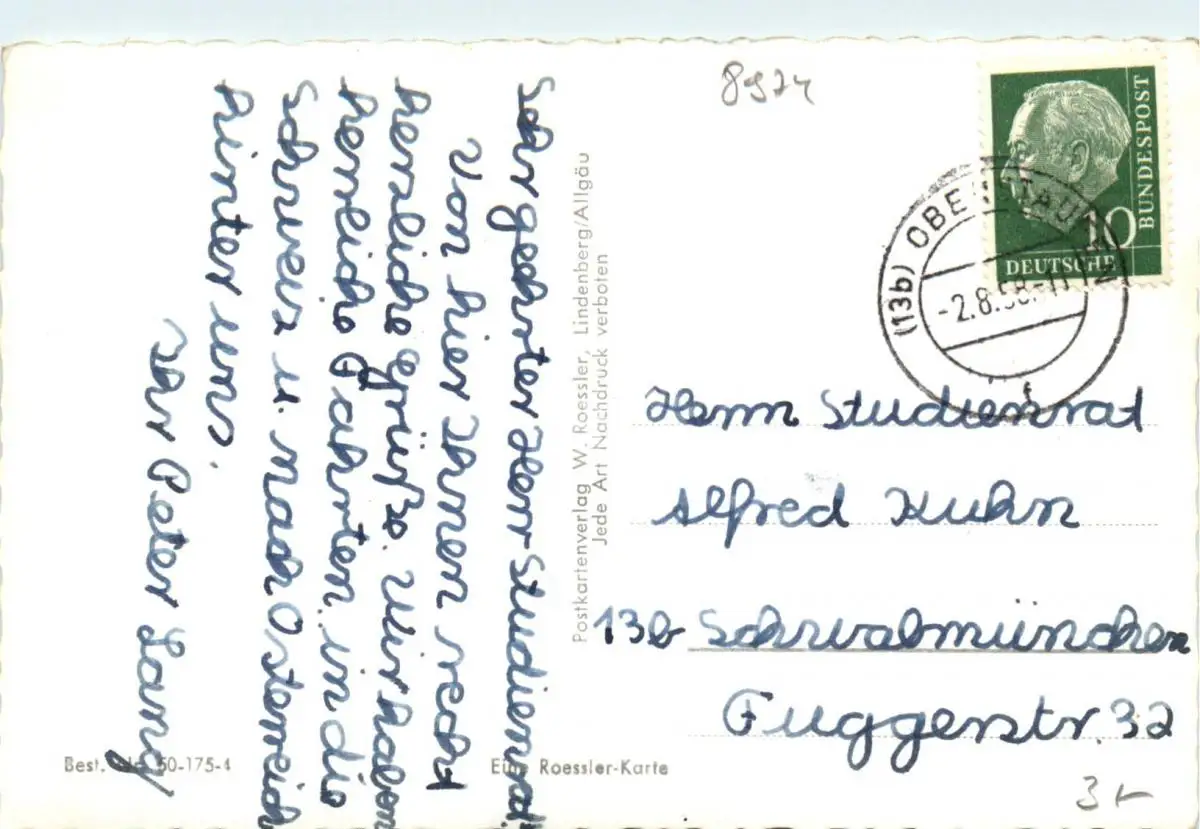 Sehr geehrter Herr Studienrat
Von hier Ihnen recht
herzliche Grüße. Wir haben
herrliche Fahrten in die
Schweiz u. nach Österreich
hinter uns.
Ihr Peter
Postkartenverlag W. Roessler, Lindenberg/Allgäu
Jede Art Nachdruck verboten
8924
BUNDESPOST
10
DEUTSCHE
(13b) OBERSTAUFEN
-2.8.58.-11
Herrn Studienrat
Alfred Kuhn
13b Schwabmünchen
Fuggerstr. 32
Best. Nr. 50-175-4
Eine Roessler-Karte